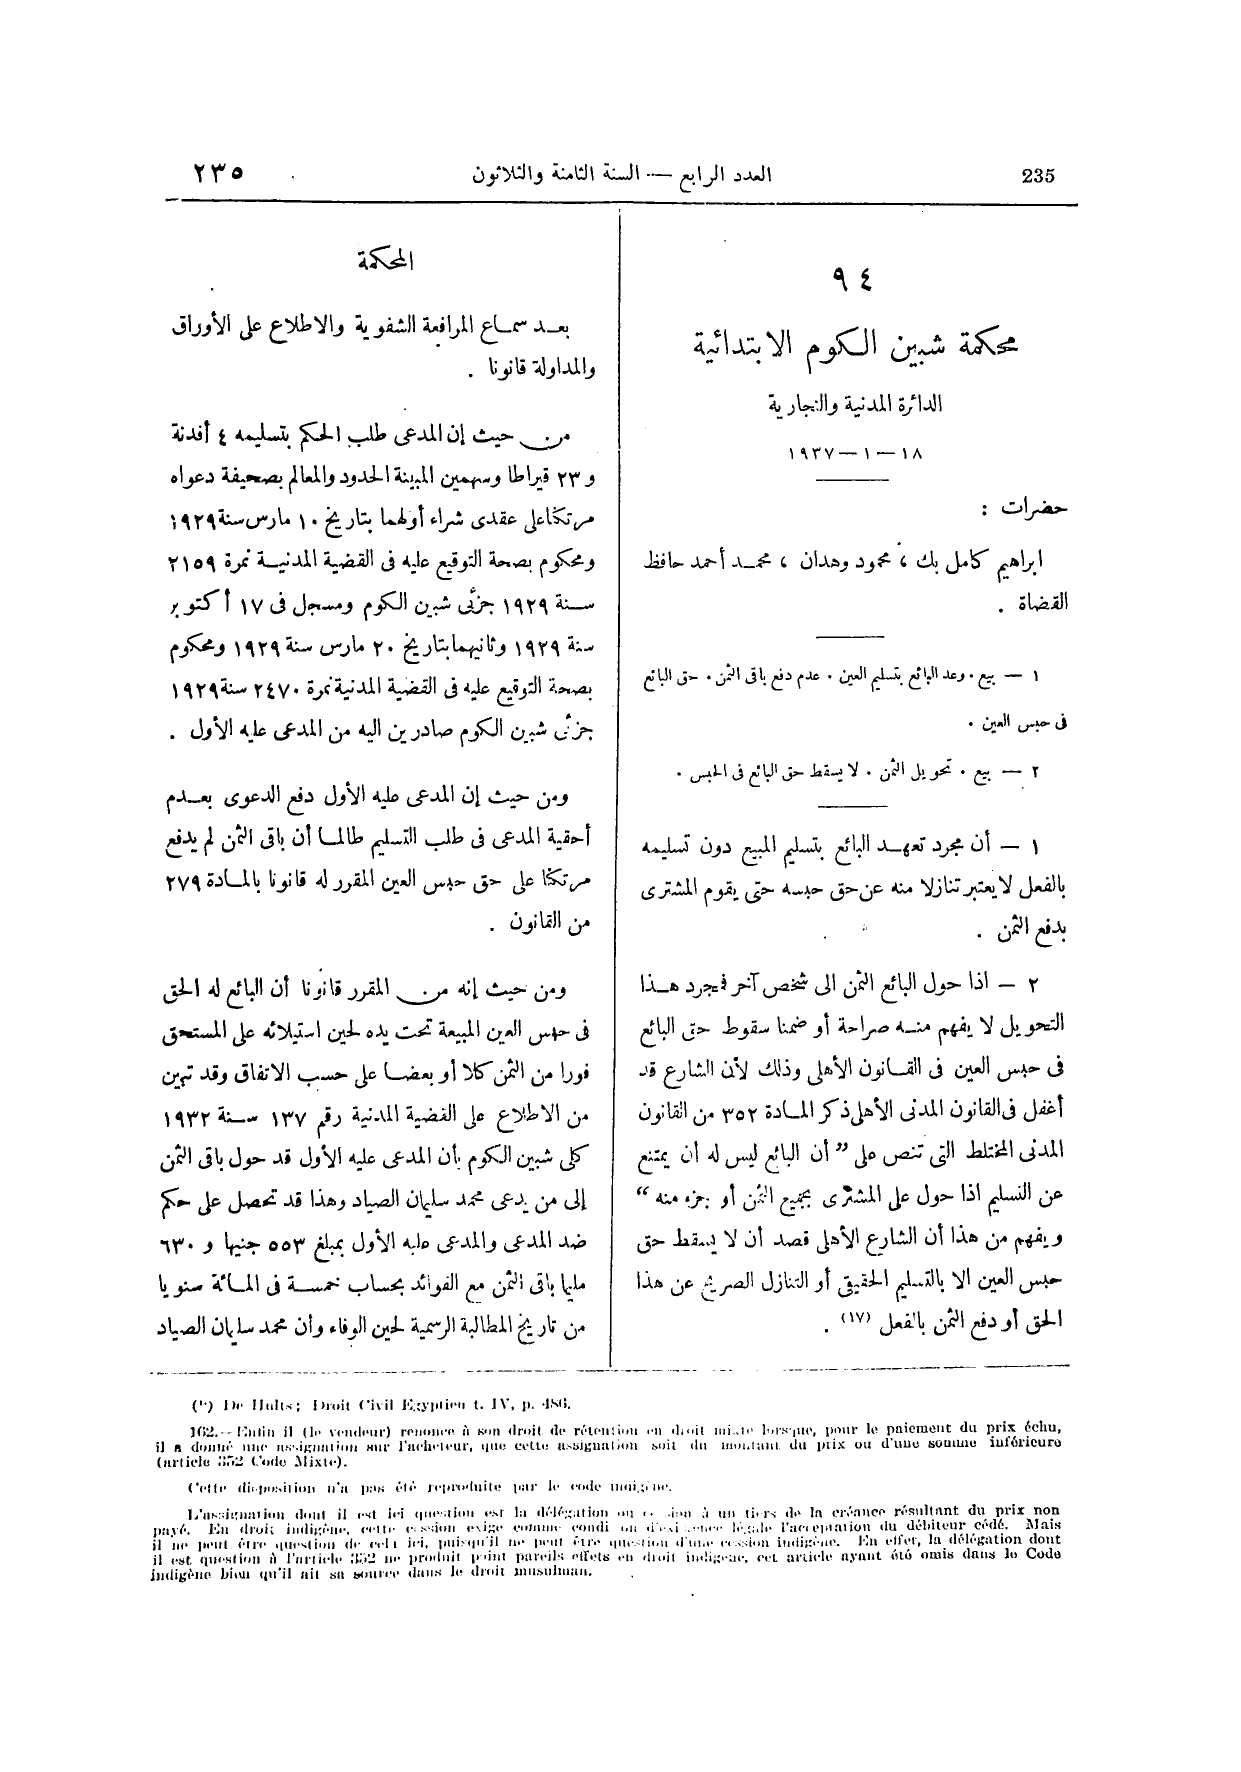 235
العدد الرابع — السنة الثامنة والثلاثون
٢٣٥
٩٤
محكمة شبين الكوم الابتدائية
الدائرة المدنية والتجارية
١٨—١—١٩٣٧
حضرات :
ابراهيم كامل بك ، محمود وهدان ، محمد أحمد حافظ
القضاة .
١ — بيع . وعد البائع بتسليم العين . عدم دفع باقى الثمن . حق البائع
فى حبس العين .
٢ — بيع . تحويل الثمن . لا يسقط حق البائع فى الحبس .
١ — أن مجرد تعهد البائع بتسليم المبيع دون تسليمه
بالفعل لا يعتبر تنازلا منه عن حق حبسه حتى يقوم المشترى
بدفع الثمن .
٢ — اذا حول البائع الثمن الى شخص آخر فمجرد هذا
التحويل لا يفهم منه صراحة أو ضمنا سقوط حق البائع
فى حبس العين فى القانون الأهلى وذلك لأن الشارع قد
أغفل فى القانون المدنى الأهلى ذكر المادة ٣٥٢ من القانون
المدنى المختلط التى تنص على ” أن البائع ليس له أن يمتنع
عن التسليم اذا حول على المشترى بجميع الثمن أو بجزء منه “
ويفهم من هذا أن الشارع الأهلى قصد أن لا يسقط حق
حبس العين الا بالتسليم الحقيقى أو التنازل الصريح عن هذا
الحق أو دفع الثمن بالفعل (١٧) .
المحكمة
بعد سماع المرافعة الشفوية والاطلاع على الأوراق
والمداولة قانونا .
من حيث إن المدعى طلب الحكم بتسليمه ٤ أفدنة
و ٢٣ قيراطا وسهمين المبينة الحدود والمعالم بصحيفة دعواه
مرتكنا على عقدى شراء أولهما بتاريخ ١٠ مارس سنة ١٩٢٩
ومحكوم بصحة التوقيع عليه فى القضية المدنية نمرة ٢١٥٩
سنة ١٩٢٩ جزئى شبين الكوم ومسجل فى ١٧ أكتوبر
سنة ١٩٢٩ وثانيهما بتاريخ ٢٠ مارس سنة ١٩٢٩ ومحكوم
بصحة التوقيع عليه فى القضية المدنية نمرة ٢٤٧٠ سنة ١٩٢٩
جزئى شبين الكوم صادرين اليه من المدعى عليه الأول .
ومن حيث إن المدعى عليه الأول دفع الدعوى بعدم
أحقية المدعى فى طلب التسليم طالما أن باقى الثمن لم يدفع
مرتكنا على حق حبس العين المقرر له قانونا بالمادة ٢٧٩
من القانون .
ومن حيث إنه من المقرر قانونا أن البائع له الحق
فى حبس العين المبيعة تحت يده لحين استيلائه على المستحق
فورا من الثمن كلا أو بعضا على حسب الاتفاق وقد تبين
من الاطلاع على القضية المدنية رقم ١٣٧ سنة ١٩٣٢
كلى شبين الكوم بأن المدعى عليه الأول قد حول باقى الثمن
إلى من يدعى محمد سليمان الصياد وهذا قد تحصل على حكم
ضد المدعى والمدعى عليه الأول بمبلغ ٥٥٣ جنيها و ٦٣٠
مليما باقى الثمن مع الفوائد بحساب خمسة فى المائة سنويا
من تاريخ المطالبة الرسمية لحين الوفاء وأن محمد سليمان الصياد
De Hults; Droit Civil Egyptien t. IV, p. 486.
162.— Enfin il (le vendeur) renonce à son droit de rétention en droit mixte lorsque, pour le paiement du prix échu,
il a donné une assignation sur l'acheteur, que cette assignation soit du montant du prix ou d'une somme inférieure
(article 352 Code Mixte).
Cette disposition n'a pas été reproduite par le code indigène.
L'assignation dont il est ici question est la délégation ou cession à un tiers de la créance résultant du prix non
payé. En droit indigène, cette cession exige comme condition d'existence légale l'acceptation du débiteur cédé. Mais
il ne peut être question de celui ici, puisqu'il ne peut être question d'une cession indigène. En effet, la délégation dont
il est question à l'article 352 ne produit point pareils effets en droit indigène, cet article ayant été omis dans le Code
indigène bien qu'il ait sa source dans le droit musulman.